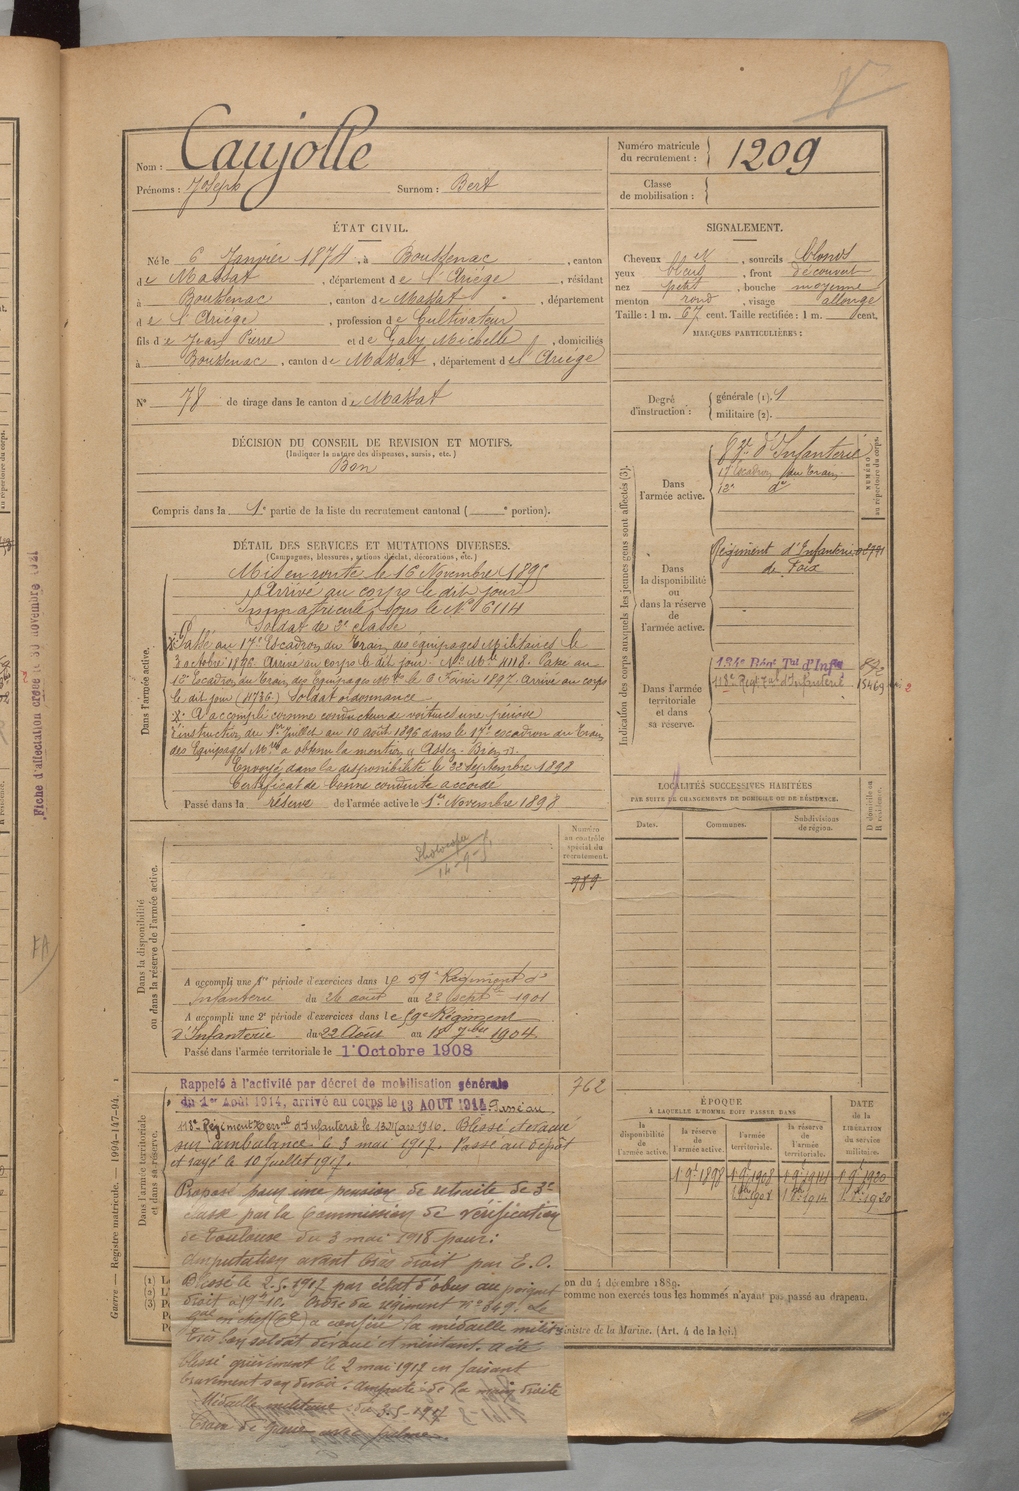 Nom : Caujolle
Prénoms : Joseph Surnom : Bert
Numéro matricule du recrutement : 1209
Classe de mobilisation :
ÉTAT CIVIL.
Né le 6 Janvier 1874, à Boussenac, canton
de Massat, département de l'Ariége, résidant
à Boussenac, canton de Massat, département
d e l'Ariége, profession de Cultivateur
fils de Jean Pierre et de Galy Michelle, domiciliés
à Boussenac, canton de Massat, département de l'Ariége
N° 78 de tirage dans le canton de Massat
SIGNALEMENT.
Cheveux , sourcils blonds
yeux bleus, front découvert
nez petit, bouche moyenne
menton rond, visage allongé
Taille : 1 m. 67 cent. Taille rectifiée : 1 m. cent.
MARQUES PARTICULIÈRES :
Degré d'instruction : générale (1). 1
militaire (2).
DÉCISION DU CONSEIL DE REVISION ET MOTIFS.
(Indiquer la nature des dispenses, sursis, etc.)
Bon
Compris dans la 1e partie de la liste du recrutement cantonal ( e portion).
DÉTAIL DES SERVICES ET MUTATIONS DIVERSES.
(Campagnes, blessures, actions d'éclat, décorations, etc.)
Dans l'armée active.
Mis en route le 16 Novembre 1895
Arrivé au corps le dit jour
Immatriculé sous le N° 6114
Soldat de 2e classe
Passé au 17e Escadron du Train des équipages Militaires le
3 octobre 1896. Arrivé au corps le dit jour. N° Mle 4118. Passé au
Escadron du Train des Equipages Mres le 6 Février 1897. Arrivé au corps
le dit jour (4736) Soldat ordonnance
A accompli comme conducteur de voitures une période
d'instruction du 1er Juillet au 10 août 1896 dans le 17e escadron du Train
des Equipages Mres a obtenu la mention « Assez-Bien ».
Envoyé dans la disponibilité le 22 septembre 1898
Certificat de bonne conduite accordé
Passé dans la réserve de l'armée active le 1er Novembre 1898
Indication des corps auxquels les jeunes gens sont affectés (3).
NUMÉRO au répertoire du corps.
Dans l'armée active.
d'Infanterie
17 Escadron du Train
12e do
Dans la disponibilité ou dans la réserve de l'armée active.
Régiment d'Infanterie
de Foix
Dans l'armée territoriale et dans sa réserve.
134e Régt Tal d'Infie
118e Régt Tal d'Infanterie
LOCALITÉS SUCCESSIVES HABITÉES
PAR SUITE DE CHANGEMENTS DE DOMICILE OU DE RÉSIDENCE.
Dates. Communes. Subdivisions de région. D domicile ou R résidence.
Numéro au contrôle spécial du recrutement.
989
Dans la disponibilité ou dans la réserve de l'armée active.
Photocopie
A accompli une 1re période d'exercices dans le 59e Régiment d'
Infanterie du 26 août au 22 Sept 1901
A accompli une 2e période d'exercices dans le 59e Régiment
d'Infanterie du 22 Août au 18 7bre 1904
Passé dans l'armée territoriale le 1er Octobre 1908
Dans l'armée territoriale et dans sa réserve.
Rappelé à l'activité par décret de mobilisation générale
du 1er Août 1914, arrivé au corps le 13 AOUT 1914. Passé au
118e Régiment Terral d'Infanterie le 13 Mars 1916. Blessé évacué
sur ambulance le 3 mai 1917. Passé au dépôt
et rayé le 10 Juillet 1917.
762
Proposé pour une pension de retraite de 3e
classe par la Commission de vérification
de Toulouse du 3 mai 1918 pour :
amputation avant bras droit par E.O.
Blessé le 2.5.1917 par éclat d'obus au poignet
droit Ordre du régiment n° 349. Le
Gal en chef a conféré la médaille milit.
Très bon soldat dévoué et méritant. A été
blessé grièvement le 2 mai 1917 en faisant
bravement son devoir. Amputé de la main droite
Médaille militaire : du 3-5-1917
Croix de guerre avec palme.
ÉPOQUE
À LAQUELLE L'HOMME DOIT PASSER DANS
la disponibilité de l'armée active. la réserve de l'armée active. l'armée territoriale. la réserve de l'armée territoriale.
DATE de la LIBÉRATION du service militaire.
on du 4 décembre 1889.
comme non exercés tous les hommes n'ayant pas passé au drapeau.
inistre de la Marine. (Art. 4 de la loi.)
Guerre — Registre matricule. — 1994-147-94.